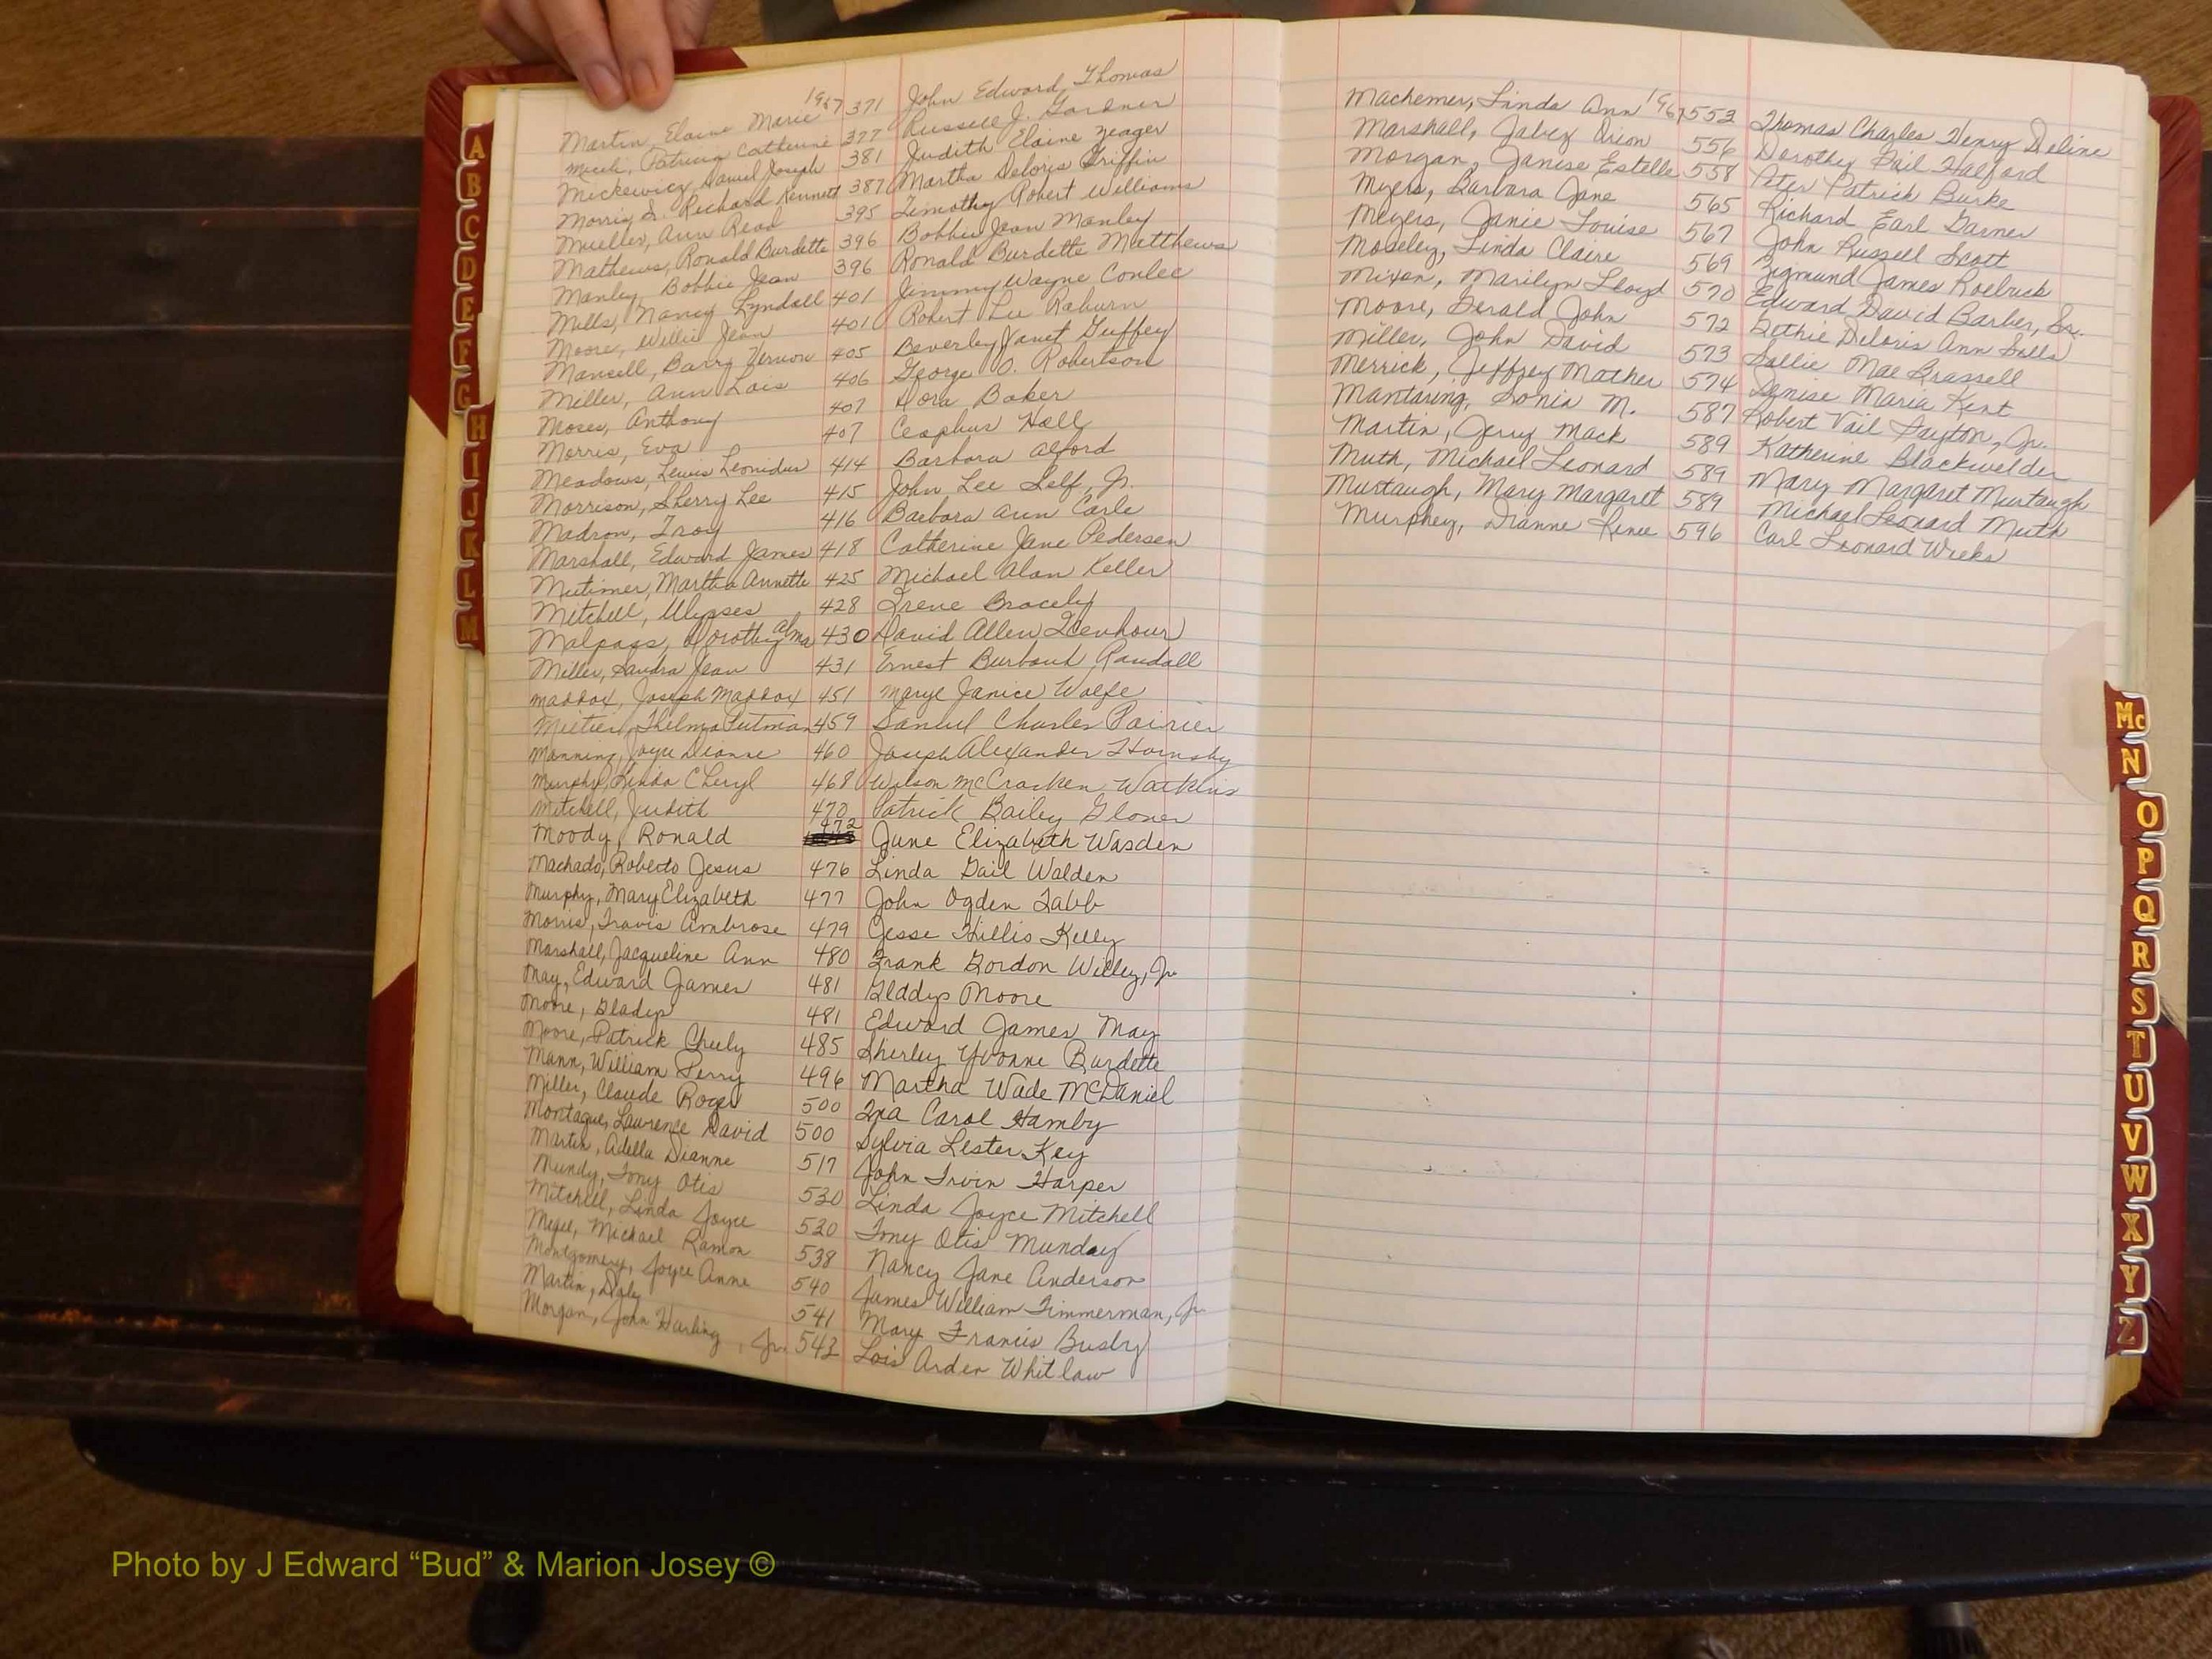 Martin, Elaine Marie 1967 371 John Edward, Thomas
Patricia Catherine 377 Russell J. Gardner
Mickewicz, Daniel Joseph 381 Judith Elaine Yeager
Morris, S. Richard Kennett 387 Martha Deloris Griffin
Mueller, Ann Read 395 Timothy Robert Williams
Mathews, Ronald Burdette 396 Bobbie Jean Manley
Manley, Bobbie Jean 396 Ronald Burdette Matthews
Mills, Nancy Lyndall 401 Jimmy Wayne Conlee
Moore, Willie Jean 401 Robert Lee Raburn
Mansell, Barry Vernon 405 Beverley Janet Guffey
Miller, Ann Lois 406 George O. Robertson
Moses, Anthony 407 Dora Baker
Morris, Eva 407 Ceaphus Hall
Meadows, Lewis Leonidus 414 Barbara Alford
Morrison, Sherry Lee 415 John Lee Self, Jr.
Madron, Troy 416 Barbara Ann Carle
Marshall, Edward James 418 Catherine Jane Pedersen
Mutimer, Martha Annette 425 Michael Alan Keller
Mitchell, Ulysses 428 Irene Bracely
Malpass, Dorothy Alma 430 David Allen Isenhour
Miller, Sandra Jean 431 Ernest Burband Randall
Maddox, Joseph Maddox 451 Marye Janice Wolfe
Thelma Putman 459 Samuel Charles Poirier
Manning, Joyce Dianne 460 Joseph Alexander Hornsby
Murphy, Linda Cheryl 468 Wilson McCracken Watkins
Mitchell, Judith 470 Patrick Bailey Glover
Moody, Ronald 472 June Elizabeth Wasden
Machado, Roberto Jesus 476 Linda Gail Walden
Murphy, Mary Elizabeth 477 John Ogden Tabb
Morris, Travis Ambrose 479 Jesse Hillis Kelly
Marshall, Jacqueline Ann 480 Frank Gordon Willey, Jr.
May, Edward James 481 Gladys Moore
Moore, Gladys 481 Edward James May
Moore, Patrick Cheely 485 Sherley Yvonne Burdette
Mann, William Perry 496 Martha Wade McDaniel
Miller, Claude Roger 500 Ina Carol Hamby
Montague, Lawrence David 500 Sylvia Lester Key
Martin, Adella Dianne 517 John Irvin Harper
Mundy, Tony Otis 530 Linda Joyce Mitchell
Mitchell, Linda Joyce 530 Tony Otis Munday
Michael Ramon 538 Nancy Jane Anderson
Montgomery, Joyce Anne 540 James William Timmerman, Jr.
Martin, 541 Mary Francis Busby
Morgan, John Harling, Jr. 543 Lois Arden Whitlaw
Machemer, Linda Ann 1967 553 Thomas Charles Henry Deline
Marshall, Jabez Orion 556 Dorothy Gail Halford
Morgan, Janise Estelle 558 Peter Patrick Burke
Myers, Barbara Jane 565 Richard Earl Garner
Meyers, Janie Louise 567 John Russell Scott
Moseley, Linda Claire 569 Zigmund James Roebuck
Mixon, Marilyn Lloyd 570 Edward David Barber, Sr.
Moore, Gerald John 572 Gethie Deloris Ann Salls
Miller, John David 573 Sallie Mae Brassell
Merrick, Jeffrey Mather 574 Denise Maria Kent
Mantaring, Sonia M. 587 Robert Vail Fayton, Jr.
Martin, Jerry Mack 589 Katherine Blackwelder
Muth, Michael Leonard 589 Mary Margaret Murtaugh
Murtaugh, Mary Margaret 589 Michael Leonard Muth
Murphey, Dianne Renee 596 Carl Leonard Weeks
A
B
C
D
E
F
G
H
I
J
K
L
M
Mc
N
O
P
Q
R
S
T
U
V
W
X
Y
Z
Photo by J Edward “Bud” & Marion Josey ©